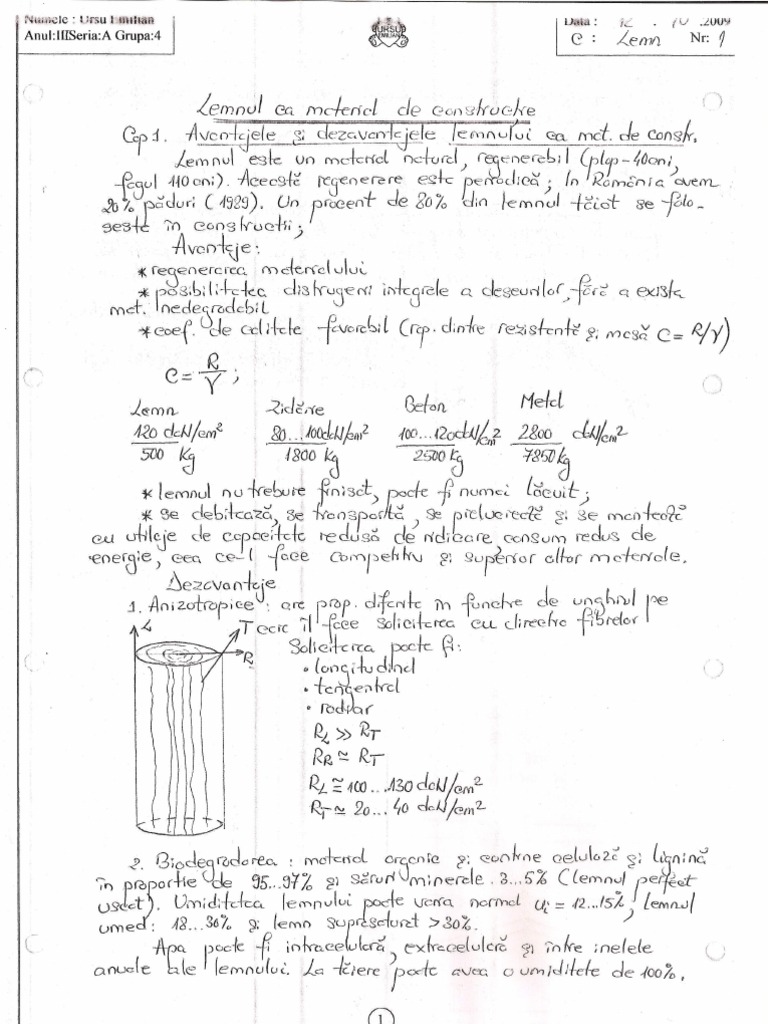 Numele : Ursu Emilian
Anul:IIISeria:A Grupa:4
URSU
EMILIAN
Data : 12 . 10 .2009
C : Lemn Nr: 1
Lemnul ca material de constructie
Cap 1. Avantajele și dezavantajele lemnului ca mat. de constr.
Lemnul este un material natural, regenerabil (plop-40ani,
fagul 110 ani). Această regenerare este periodică; În România avem
20% păduri (1989). Un procent de 80% din lemnul tăiat se folo-
sește în constructii;
Avantaje:
* regenerarea materialului
* posibilitatea distrugerii integrale a deseurilor, fără a exista
mat. inedegradabil
* coef. de calitate favorabil (rap. dintre rezistentă și masă C= R/γ)
C = R/γ ;
Lemn Zidărie Beton Metal
120 daN/cm² 80...100daN/cm² 100...120daN/cm² 2800 daN/cm²
500 Kg 1800 Kg 2500 Kg 7850 Kg
* lemnul nu trebuie finisat, poate fi numai lăcuit;
* se debitează, se transportă, se prelucrează și se montează
cu utilaje de capacitate redusă de ridicare consum redus de
energie, cea ce-l face competitiv și superior altor materiale.
Dezavantaje
1. Anizotropice : are prop. diferite în functie de unghiul pe
care îl face solicitarea cu directia fibrelor
L T R
Solicitarea poate fi:
• longitudinal
• tangential
• radiar
R_L >> R_T
R_R ≃ R_T
R_L ≅ 100...130 daN/cm²
R_T ≃ 20...40 daN/cm²
2. Biodegradarea : material organic și contine celuloză și lignină
în proportie de 95...97% și săruri minerale 3...5% (lemnul perfect
uscat). Umiditatea lemnului poate varia normal ui = 12...15%, lemnul
umed: 18...30% și lemn suprasaturat >30%.
Apa poate fi intracelulară, extracelulară și între inelele
anuale ale lemnului. La tăiere poate avea o umiditate de 100%.
1